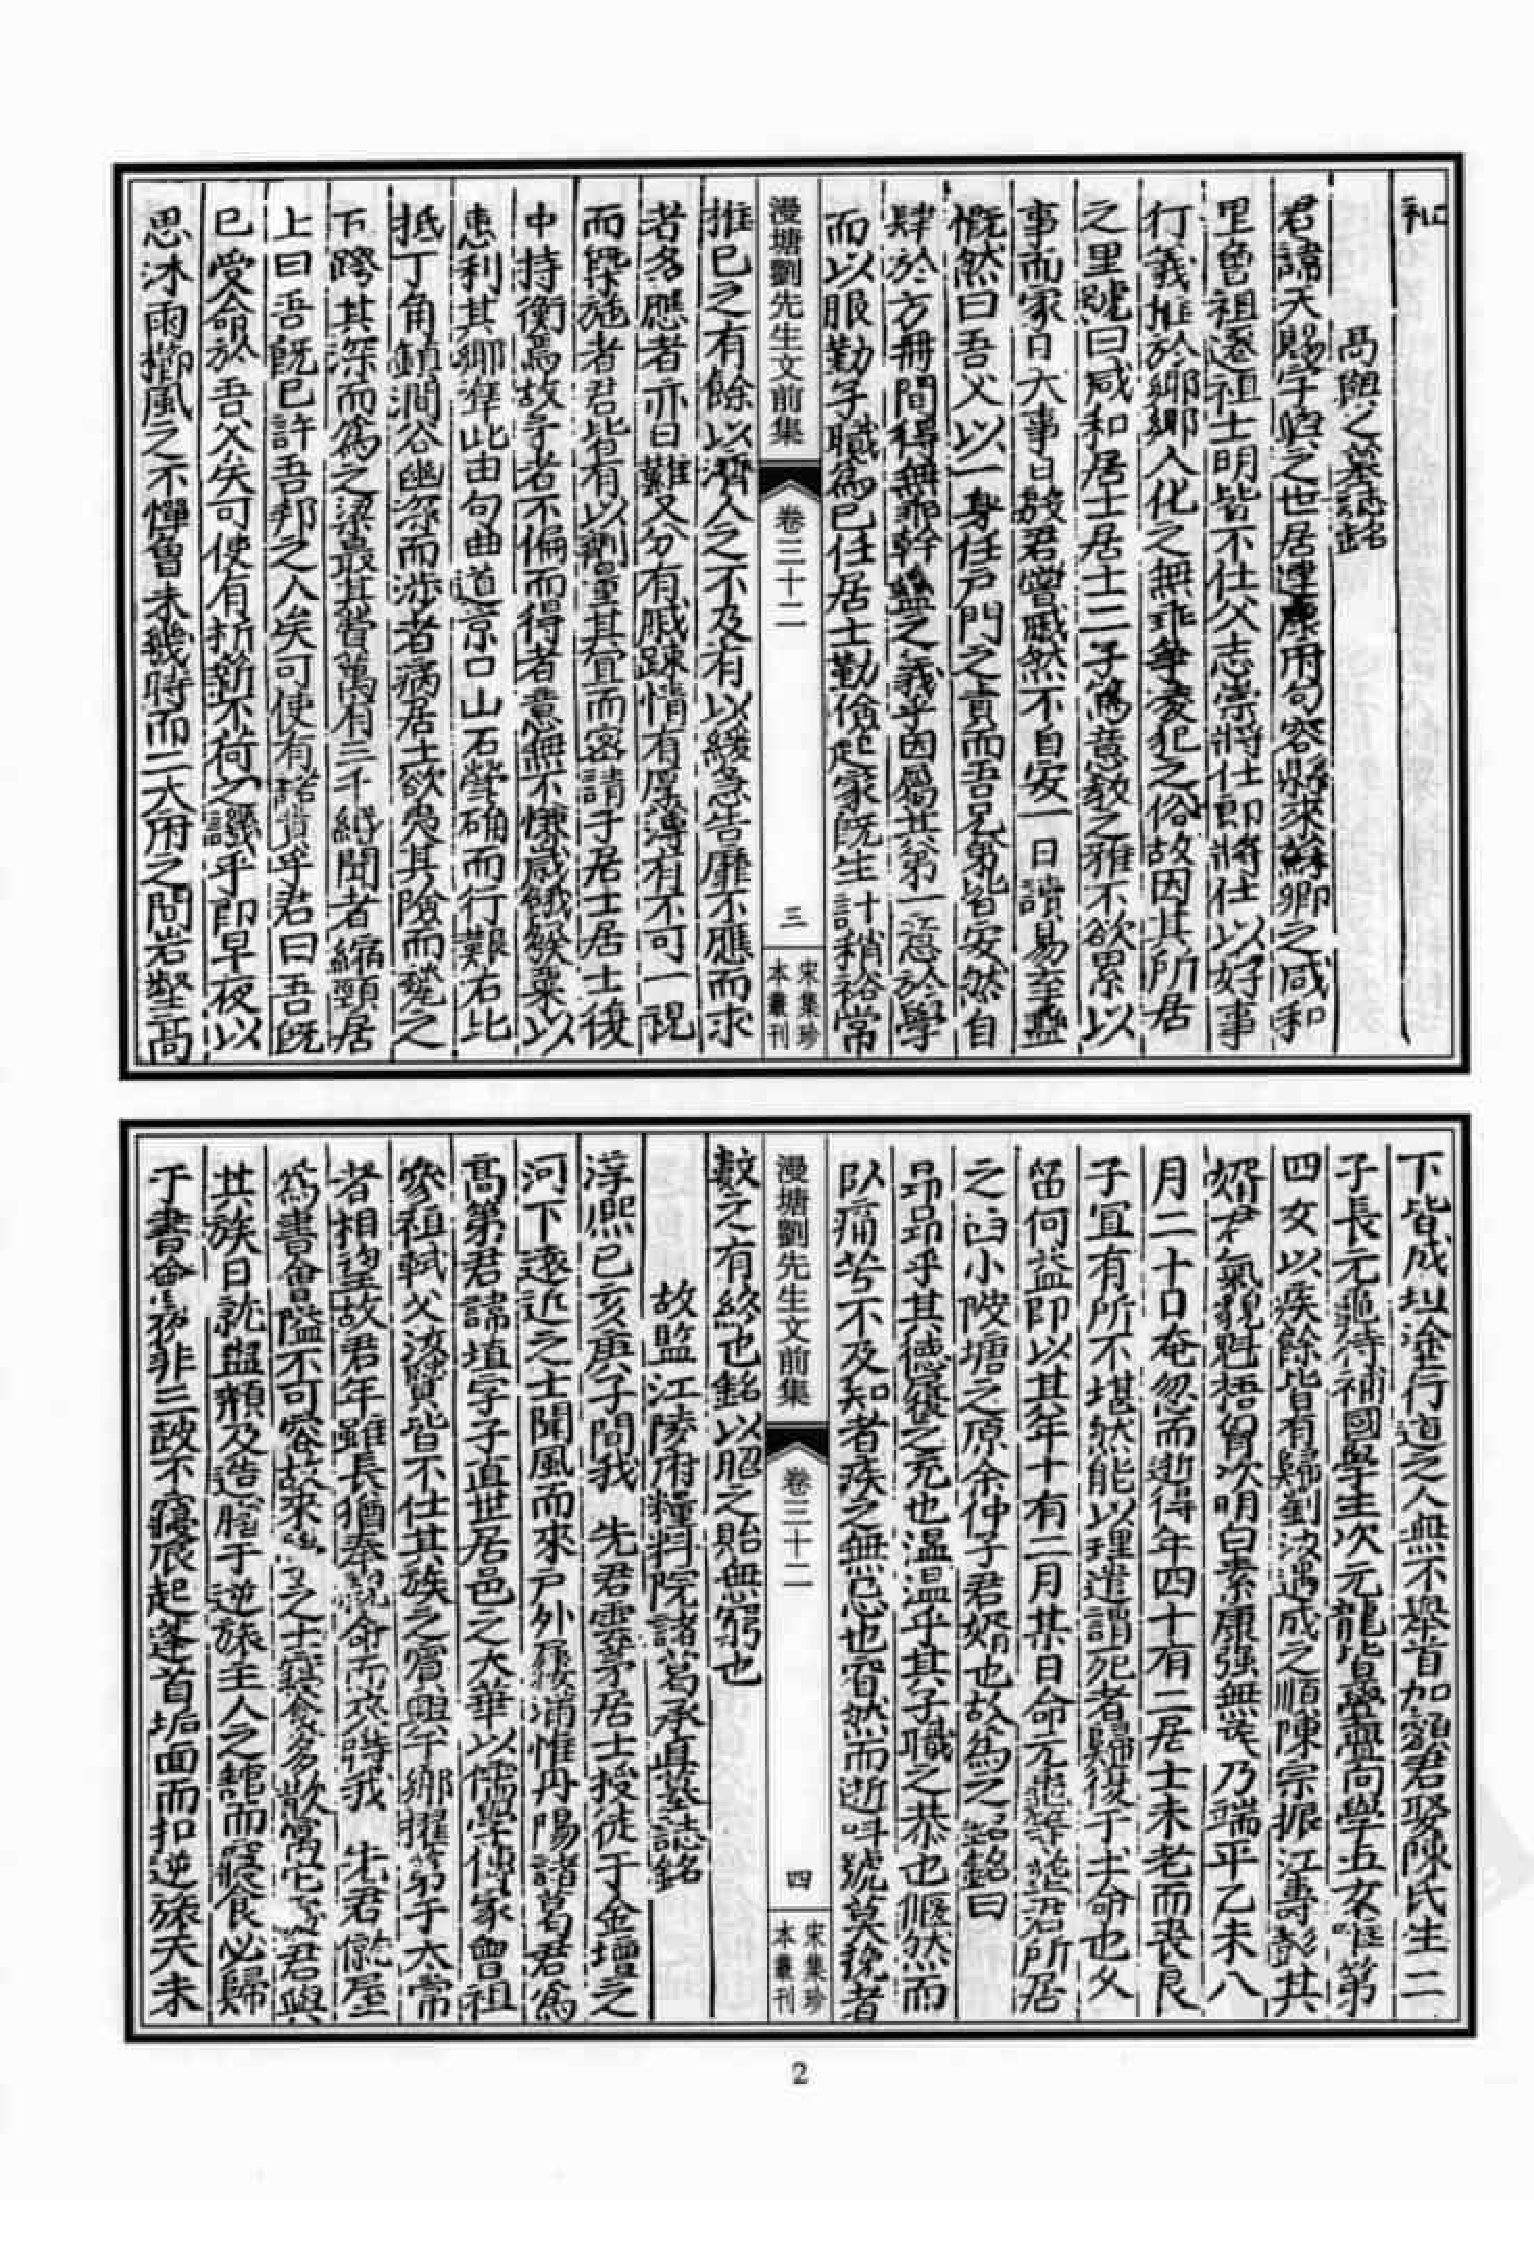 禋
高與之墓誌銘
君諱天賜字與之世居建康府句容縣來蘇鄉之咸和
里魯祖遷祖士明皆不仕父志崇將仕郎將仕以好事
行義推於鄉鄉人化之無乖爭凌犯之俗故因其所居
之里號曰咸和居士居士二子篤意教之雅不欲累以
事而家日大事日殽君嘗戚然不自安一日讀易至蠱
慨然曰吾父以一身任戶門之責而吾兄弟皆安然自
肆於方冊間得無乖幹蠱之義乎因屬其弟一意於學
而以服勤子職為已任居士勤儉起家既生計稍裕常
漫塘劉先生文前集
卷三十二
三
宋集珍
本叢刊
推已之有餘以濟人之不及有以緩急告靡不應而求
者多應者亦日難又分有戚踈情有厚薄有不可一視
而槩施者君皆有以劑量其宜而密請于居士居士後
中持衡焉故予者不偏而得者意無不慊歲饑發粟以
惠利其鄉率此由句曲道京口山石犖确而行艱右比
抵丁角鎮澗谷幽深而涉者病居士欲夷其險而甃之
下跨其深而為之梁最其費萬有三千緡聞者縮頸居
上曰吾旣已許吾邦之人矣可使有諾責乎君曰吾旣
已受命於吾父矣可使有析薪不荷之譏乎即早夜以
思沐雨擳風之不憚曾未幾時而二大府之間岩壑高
下皆成坦塗行道之人無不舉首加額君娶陳氏生二
子長元龜待補國學生次元龍皆亹亹向學五女唯第
四女以疾餘皆有歸劉汝遇成之順陳宗振江壽彭其
婿君氣貌魁梧胷次明白素康强無疾乃端平乙未八
月二十日奄忽而逝得年四十有二居士未老而喪良
子宜有所不堪然能以理遣謂死者歸復于土命也久
留何益即以其年十有二月某日命元龜等葬君所居
之西小陂塘之原余仲子君婿也故為之銘銘曰
昂昂乎其德容之充也溫溫乎其子職之恭也愾然而
以痛兮不及知者疾之無忌也窅然而逝叫號莫挽者
漫塘劉先生文前集
卷三十二
四
宋集珍
本叢刊
數之有終也銘以昭之貽無窮也
故監江陵府糧料院諸葛承直墓誌銘
淳熙己亥庚子間我　先君雲茅居士授徒于金壇之
河下遠近之士聞風而來戶外屨滿惟丹陽諸葛君為
高第君諱埴字子直世居邑之大華以儒學傳家曾祖
參祖軾父汝賢皆不仕其族之賓興于鄉擢第于太常
者相望故君年雖長猶奉親命而來時我　先君僦屋
為書會隘不可容故來學之士寢食多散寓它舍君與
其族日就盥頮及造膳于逆旅主人之舘而寢食必歸
于書會夜非三鼓不寢辰起蓬首垢面而扣逆旅天未
2